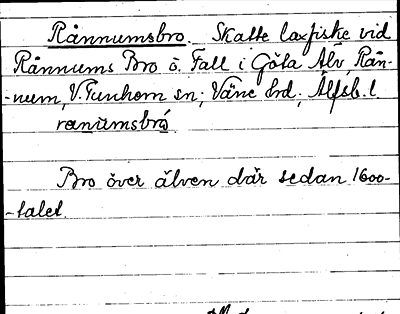 Rånnumsbro. Skatte laxfiske vid
Rånnums Bro o. Fall i Göta Älv, Rån-
-num, V. Tunhem sn; Väne hd; Älfsb. l.
ranumsbro
Bro över älven där sedan 1600-
-talet